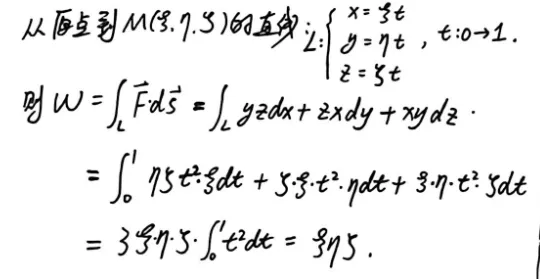 从原点到M(ξ.η.ζ)的直线:L:{x=ξt
y=ηt , t:0→1.
z=ζt
则 W=∫_L F⃗·ds⃗ = ∫_L yzdx+zxdy+xydz.
=∫₀¹ ηζt²·ξdt + ζ·ξ·t²·ηdt + ξ·η·t²·ζdt
=3ξ·η·ζ·∫₀¹t²dt = ξηζ.